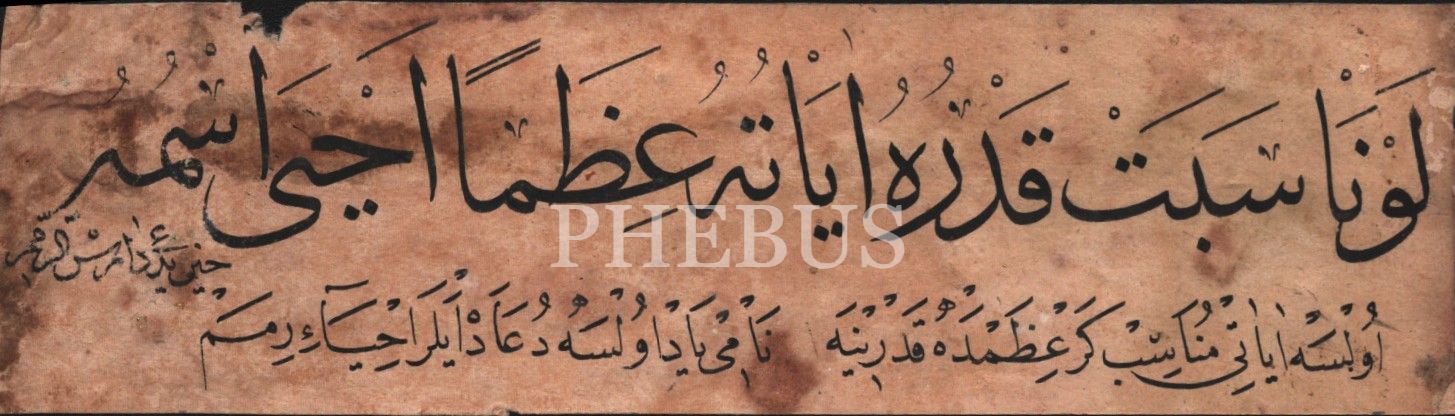 لَوْ نَاسَبَتْ قَدْرَهُ اٰيَاتُهُ عِظَمًا اَحْيَى اسْمُهُ
حِينَ يُدْعٰى دَارِسَ الرِّمَمِ
اُولْسَه اٰيَاتِى مُنَاسِبْ كَرْ عِظَمْدَه قَدْرِينَه نَامِى يَادْ اُولْسَه دُعَادَه اَيلَر اِحْيَاءِ رِمَمْ
PHEBUS